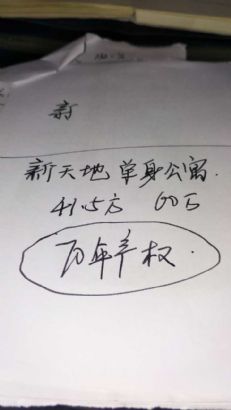 新
新天地 单身公寓.
41.5方 60万
70年产权.